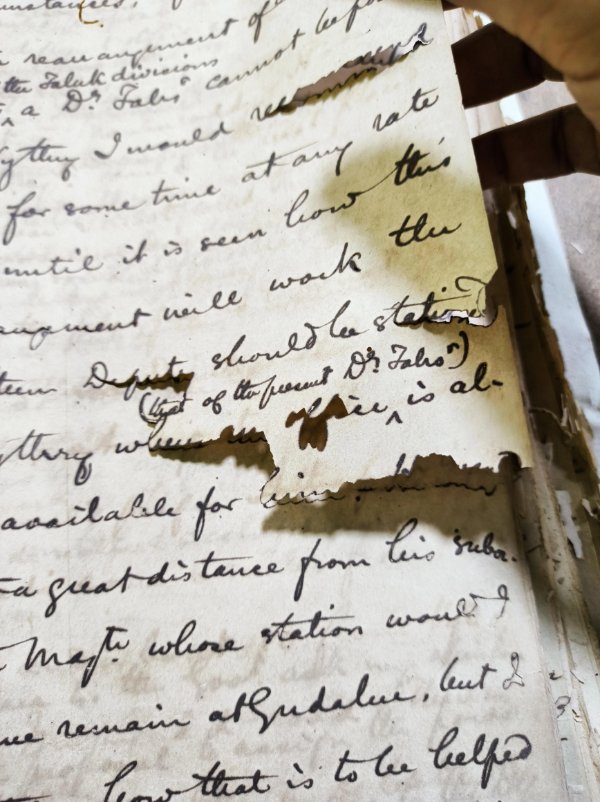 rearrangement of
the Taluk divisions
a Dy. Tahsr. cannot be
I would recommend
for some time at any rate
until it is seen how this
will work the
Deputy should be stationd
(that of the present Dy. Tahsr.)
office is al-
available for him
a great distance from his suba-
Magte. whose station would
remain at Gudalur, but I
how that is to be helped